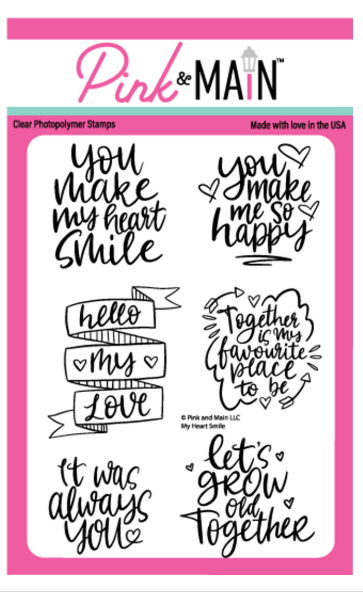 Pink & MAiN™
Clear Photopolymer Stamps
Made with love in the USA
you
make
my heart
smile
you
make
me so
happy
hello
my
love
Together
is my
favourite
place
to be
© Pink and Main LLC
My Heart Smile
it was
always
you
let's
grow
old
Together